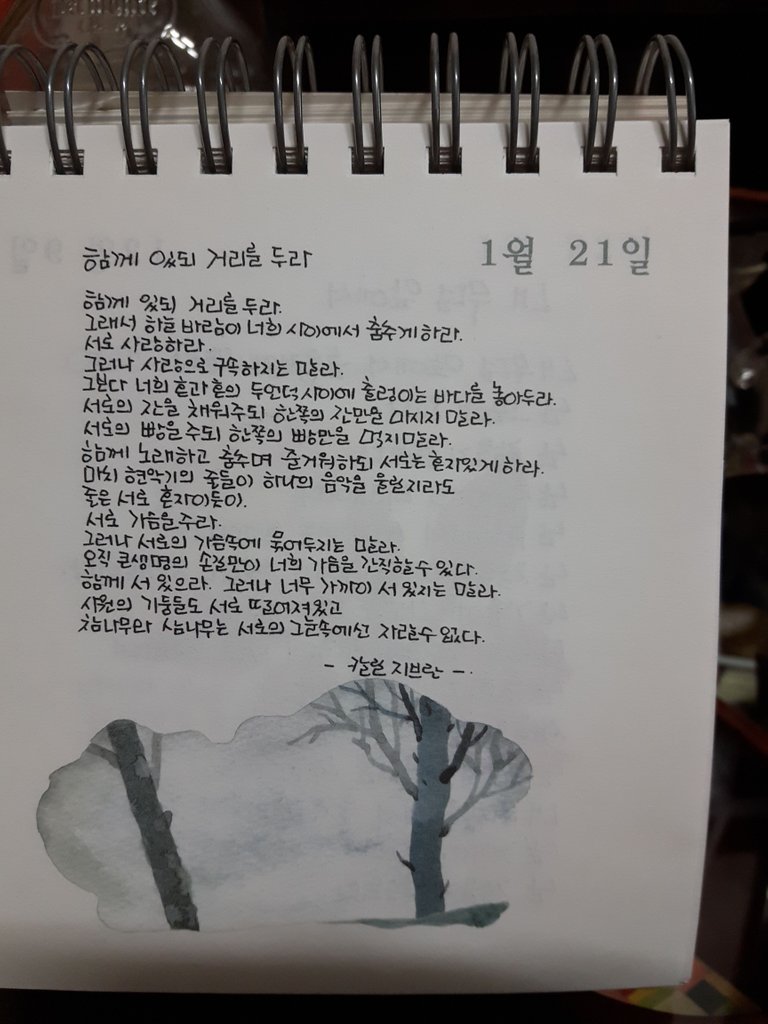 함께 있되 거리를 두라
1월 21일
함께 있되 거리를 두라.
그래서 하늘 바람이 너희 사이에서 춤추게 하라.
서로 사랑하라.
그러나 사랑으로 구속하지는 말라.
그보다 너희 혼과 혼의 두 언덕 사이에 출렁이는 바다를 놓아두라.
서로의 잔을 채워주되 한쪽의 잔만을 마시지 말라.
서로의 빵을 주되 한쪽의 빵만을 먹지 말라.
함께 노래하고 춤추며 즐거워하되 서로는 혼자있게 하라.
마치 현악기의 줄들이 하나의 음악을 울릴지라도
줄은 서로 혼자이듯이.
서로 가슴을 주라.
그러나 서로의 가슴속에 묶어두지는 말라.
오직 큰생명의 손길만이 너희 가슴을 간직할수 있다.
함께 서 있으라. 그러나 너무 가까이 서 있지는 말라.
사원의 기둥들도 서로 떨어져 있고
참나무와 삼나무는 서로의 그늘속에선 자랄수 없다.
- 칼릴 지브란 -.